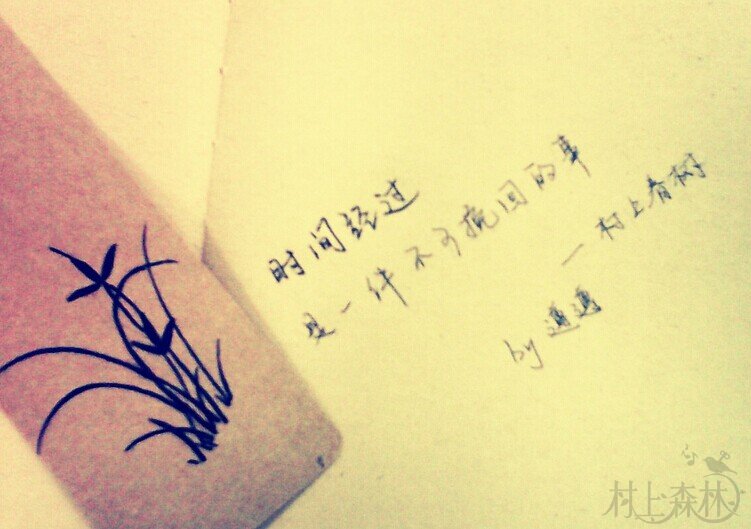 时间经过
是一件不可挽回的事
—村上春树
by 遥遥
村上森林